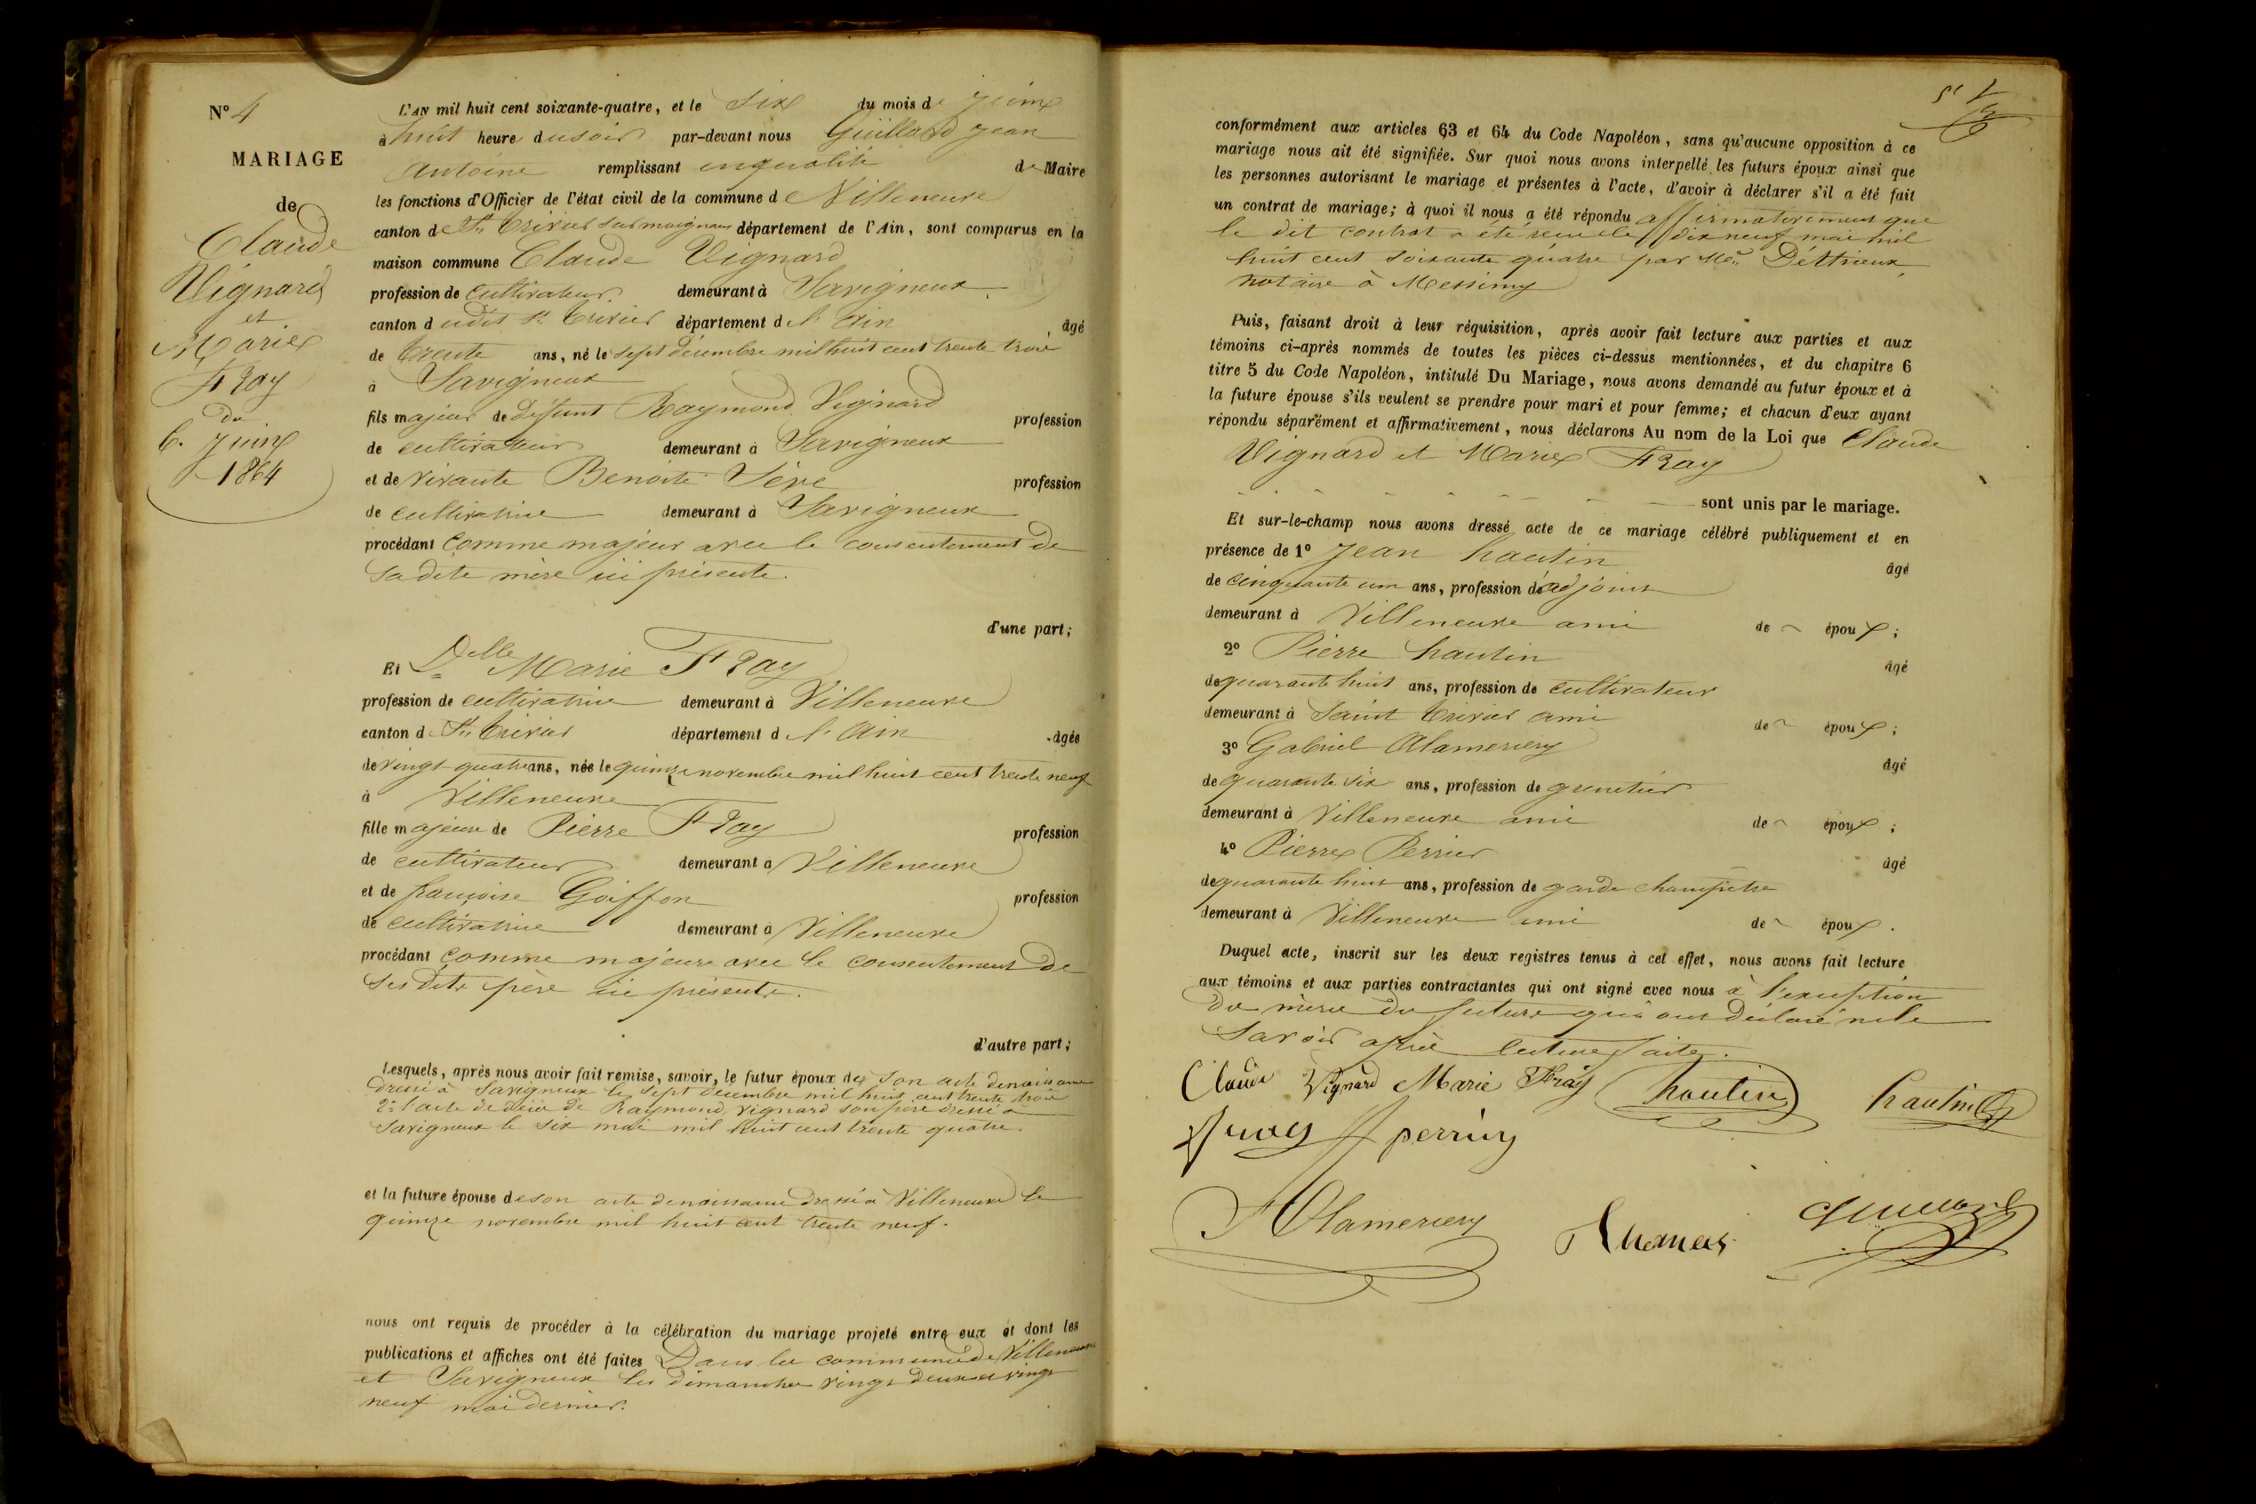 N° 4
MARIAGE
de
Claude
Vignard
et
Marie
Fray
du
6. Juin
1864
L'AN mil huit cent soixante-quatre, et le six du mois de juin
à huit heure du soir par-devant nous Guillard Jean
Antoine remplissant en qualité de Maire
les fonctions d'Officier de l'état civil de la commune de Villeneuve
canton de St Trivier sur moignans département de l'Ain, sont comparus en la
maison commune Claude Vignard
profession de cultivateur demeurant à Savigneux
canton dudit St Trivier département de l'Ain âgé
de trente ans, né le sept décembre mil huit cent trente trois
à Savigneux
fils majeur de défunt Raymond Vignard profession
de cultivateur demeurant à Savigneux
et de vivante Benoite Sève profession
de cultivatrice demeurant à Savigneux
procédant comme majeur avec le consentement de
sa dite mère ici présente.
d'une part;
Et Delle Marie Fray
profession de cultivatrice demeurant à Villeneuve
canton de St Trivier département de l'Ain âgée
de vingt quatre ans, née le quinze novembre mil huit cent trente neuf
à Villeneuve
fille majeure de Pierre Fray profession
de cultivateur demeurant à Villeneuve
et de françoise Goiffon profession
de cultivatrice demeurant à Villeneuve
procédant comme majeure avec le consentement de
ses dits père ici présents.
d'autre part;
Lesquels, après nous avoir fait remise, savoir, le futur époux de son acte de naissance
dressé à Savigneux le sept décembre mil huit cent trente trois
2° l'acte de décès de Raymond Vignard son père dressé à
Savigneux le six mai mil huit cent trente quatre.
et la future épouse de son acte de naissance dressé à Villeneuve le
quinze novembre mil huit cent trente neuf.
nous ont requis de procéder à la célébration du mariage projeté entre eux et dont les
publications et affiches ont été faites Dans les communes de Villeneuve
et Savigneux les dimanches vingt deux et vingt
neuf mai dernier.
conformément aux articles 63 et 64 du Code Napoléon, sans qu'aucune opposition à ce
mariage nous ait été signifiée. Sur quoi nous avons interpellé les futurs époux ainsi que
les personnes autorisant le mariage et présentes à l'acte, d'avoir à déclarer s'il a été fait
un contrat de mariage; à quoi il nous a été répondu affirmativement que
le dit contrat a été reçu le dix neuf mai mil
huit cent soixante quatre par Me Déttrieux
notaire à Messimy
Puis, faisant droit à leur réquisition, après avoir fait lecture aux parties et aux
témoins ci-après nommés de toutes les pièces ci-dessus mentionnées, et du chapitre 6
titre 5 du Code Napoléon, intitulé Du Mariage, nous avons demandé au futur époux et à
la future épouse s'ils veulent se prendre pour mari et pour femme; et chacun d'eux ayant
répondu séparément et affirmativement, nous déclarons Au nom de la Loi que Claude
Vignard et Marie Fray
sont unis par le mariage.
Et sur-le-champ nous avons dressé acte de ce mariage célébré publiquement et en
présence de 1° Jean hautin âgé
de cinquante un ans, profession d'adjoint
demeurant à Villeneuve ami de époux;
2° Pierre hautin âgé
de quarante huit ans, profession de cultivateur
demeurant à Saint Trivier ami de époux;
3° Gabriel Alamercery âgé
de quarante six ans, profession de grenetier
demeurant à Villeneuve ami de époux;
4° Pierre Perrier âgé
de quarante huit ans, profession de garde champêtre
demeurant à Villeneuve ami de époux.
Duquel acte, inscrit sur les deux registres tenus à cet effet, nous avons fait lecture
aux témoins et aux parties contractantes qui ont signé avec nous à l'exception
du mère du future qui ont déclaré ne le
savoir après lecture faite.
Claude Vignard Marie Fray hautin hautin
fray perrier
Alamercery Guillard